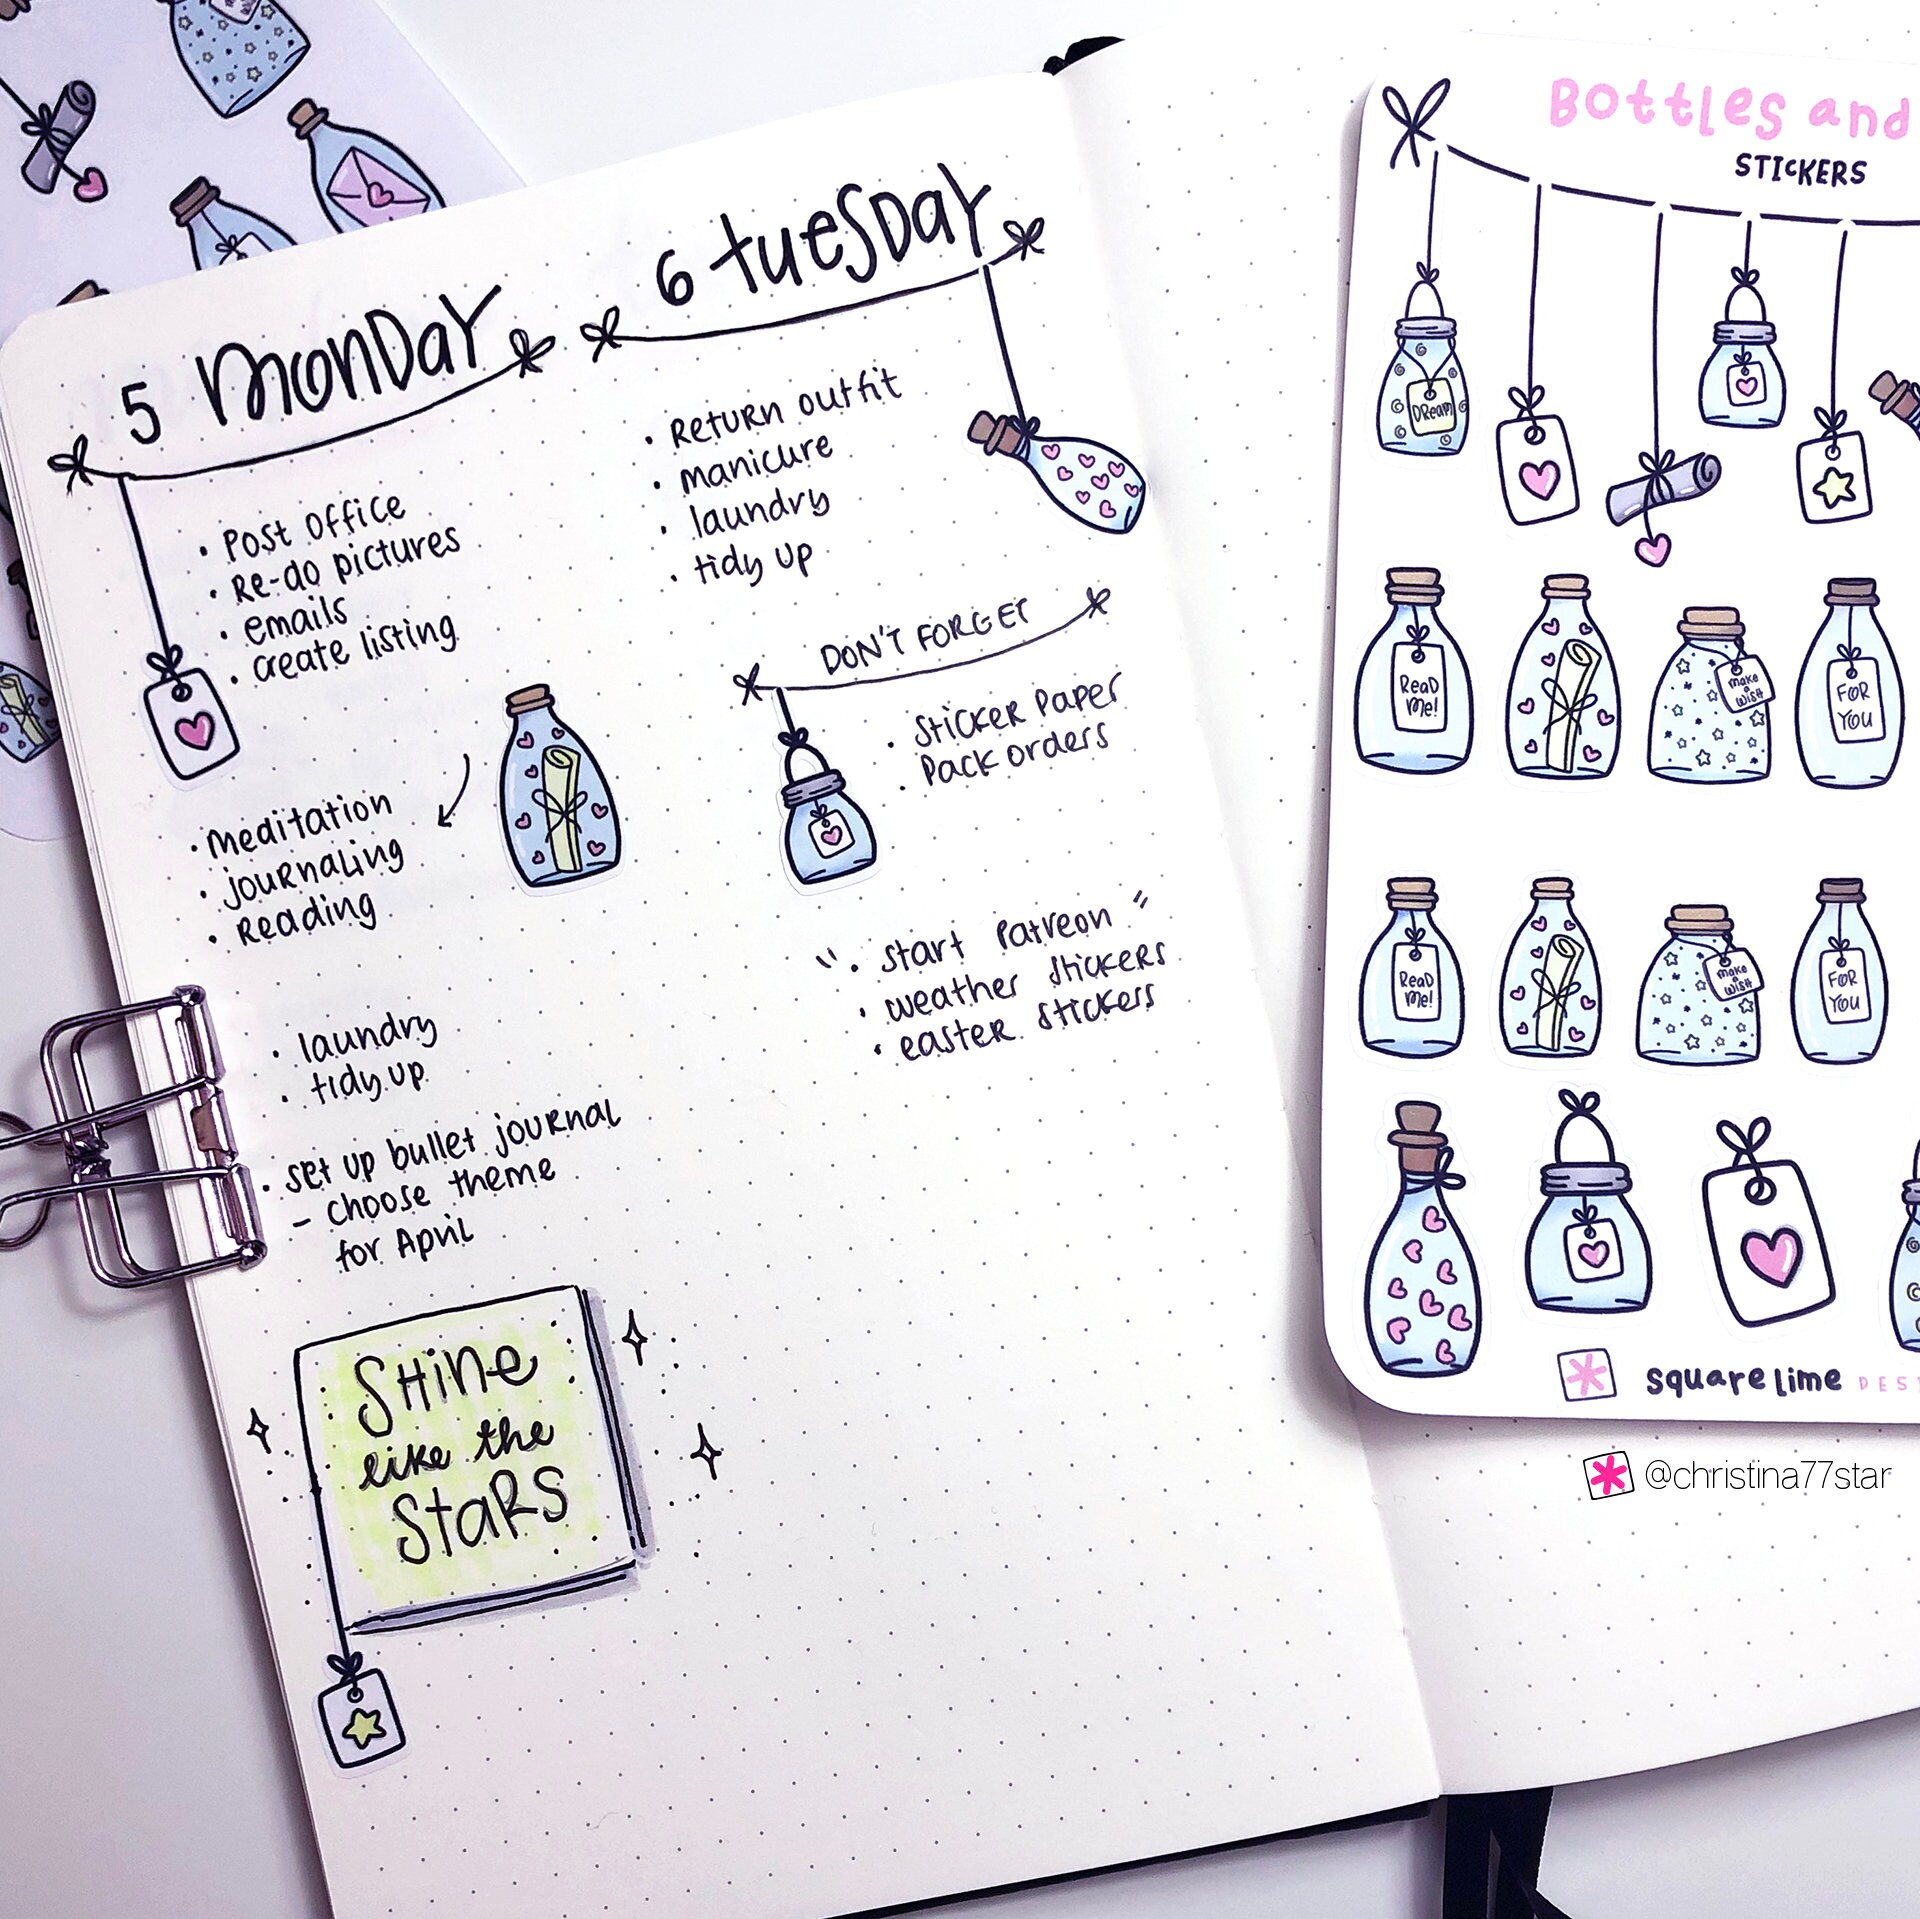 5 Monday
• Post Office
• Re-do pictures
• emails
• create listing
• meditation
• journaling
• Reading
• laundry
• tidy up
• set up bullet journal
- choose theme
for April
SHine
like the
StaRS
6 tuesday
• Return outfit
• manicure
• laundry
• tidy up
DON'T FORGET
• Sticker Paper
• Pack orders
" • start Patreon "
• weather stickers
• easter stickers
Bottles and
STICKERS
DReam
ReaD
me!
make
a
wish
FOR
YOU
ReaD
me!
make
a
wish
FOR
YOU
square lime
@christina77star